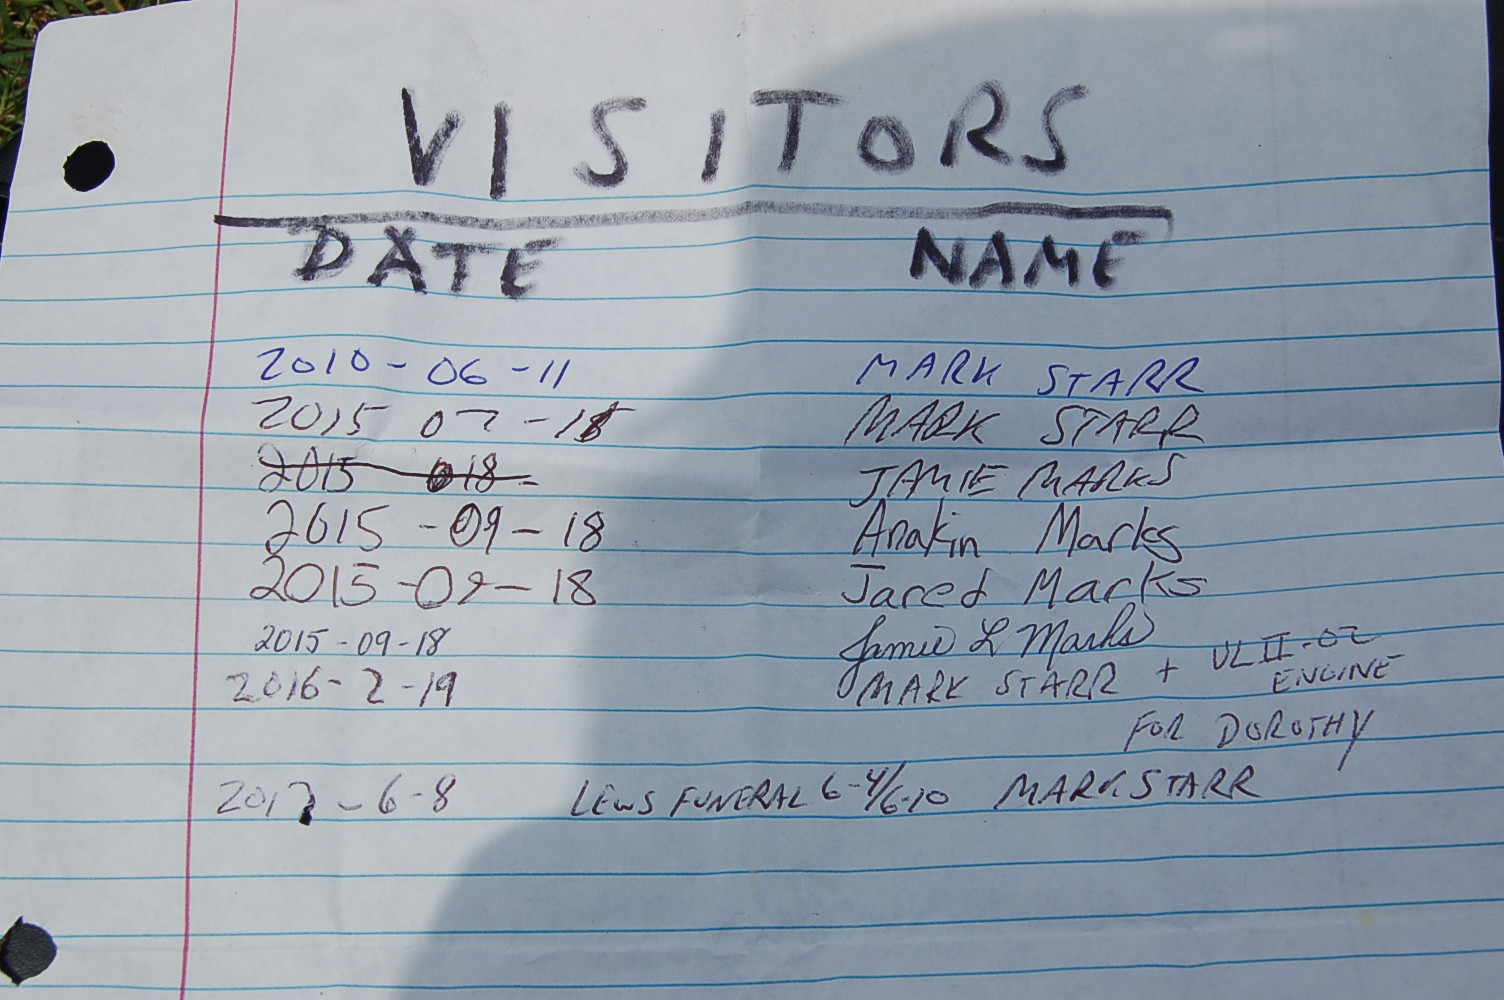 VISITORS
DATE NAME
2010-06-11 MARK STARR
2015 07-18 MARK STARR
2015 018- JAMIE MARKS
2015-09-18 Anakin Marks
2015-09-18 Jared Marks
2015-09-18 Jamie L Marks
2016-2-19 MARK STARR + VL II-02
ENGINE
FOR DOROTHY
2017-6-8 LEWS FUNERAL 6-4/6-10 MARK STARR